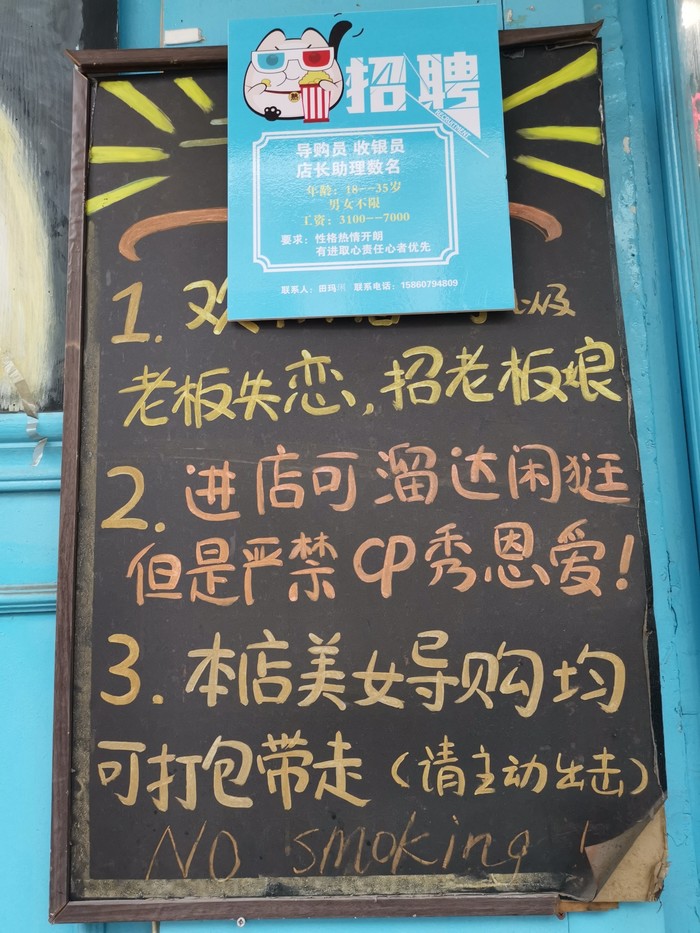 招聘
RECRUITMENT
导购员 收银员
店长助理数名
年龄：18--35岁
男女不限
工资：3100--7000
要求：性格热情开朗
有进取心责任心者优先
联系人：田玛 联系电话：15860794809
1. 欢
老板失恋，招老板娘
2. 进店可溜达闲狂
但是严禁CP秀恩爱!
3. 本店美女导购均
可打包带走（请主动出击）
No smoking !